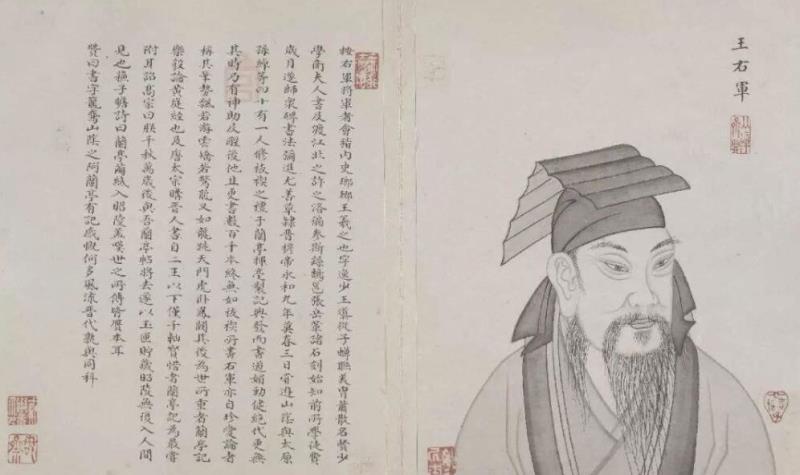 王右軍
按右軍將軍者會稽內史瑯琊王羲之也字逸少王導從子蟬聯美胄蕭散名賢少
學衛夫人書及渡江北之許之洛徧參斯籙鵠邕張岳華諸石刻始知前所學徒費
歲月遂師衆碑書法彌進尤善草隸晉穆帝永和九年莫春三日嘗遊山陰與太原
孫綽等四十有一人修祓禊之禮于蘭亭揮毫製記興發而書遒媚勁健絶代更無
其時乃有神助及醒後他日更書數百千本終無如祓禊所書右軍亦自珍愛論者
稱其筆勢飄若游雲矯若驚龍又如龍跳天門虎臥鳳閣其後為世所重者蘭亭記
樂毅論黃庭經也及唐太宗購晉人書自二王以下僅千軸寶惜者蘭亭記為最嘗
附耳語高宗曰朕千秋萬歲後與吾蘭亭帖將去遂以玉匣貯藏昭陵無復入人間
見也撫子瞻詩曰蘭亭繭紙入昭陵蓋嘆世之所傳皆贋本耳
贊曰書字籠鵞山陰之阿蘭亭有記感慨何多風流晉代孰與同科